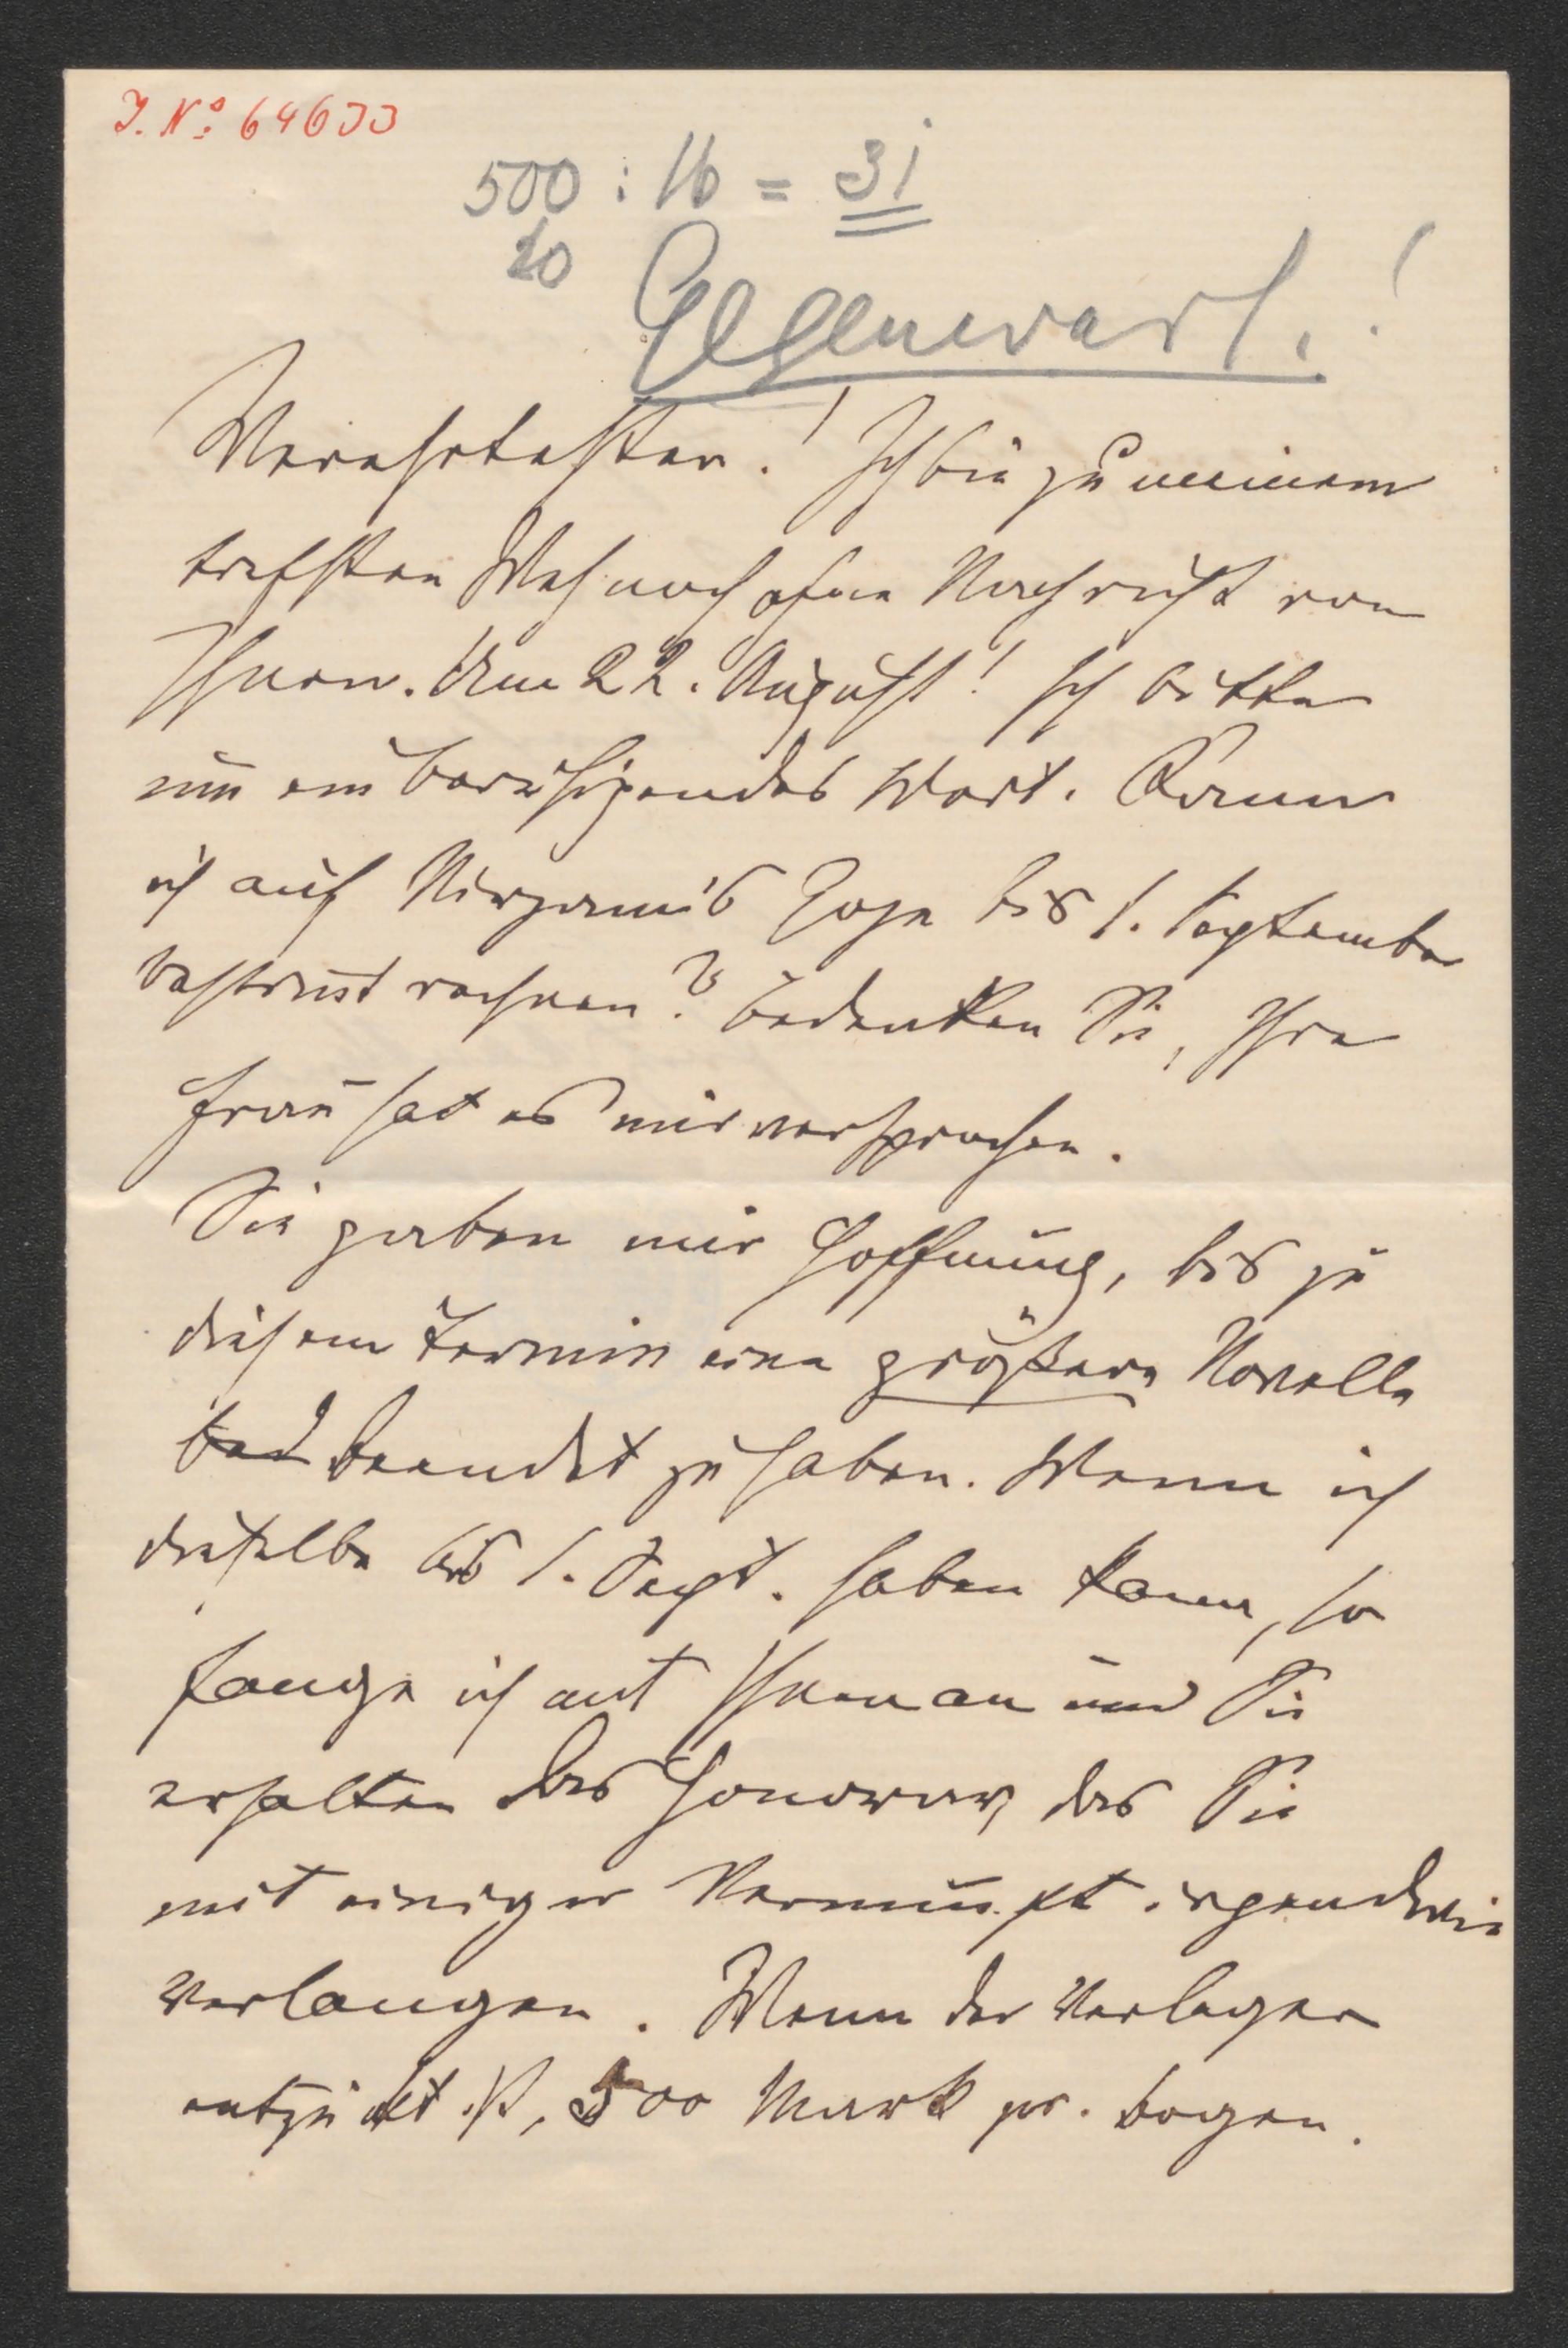 I. N.º 64633
500 : 16 = 31
20
Gegenwart. !
Verehrtester! Ich bin zu meinem
tiefsten Weh noch ohne Nachricht von
Ihnen. Am 22. August! Ich bitte
um ein beruhigendes Wort. Kann
ich auf bis 1. September
bestimmt rechnen? Bedenken Sie, Ihre
Frau hat es mir versprochen.
Sie gaben mir Hoffnung, bis zu
diesem Termin eine größere Novelle
bed beendet zu haben. Wenn ich
dieselbe bis 1. Sept. haben kann, so
fange ich mit Ihnen an und Sie
erhalten das Honorar, das Sie
mit einiger Vernunft irgendwie
verlangen. Wenn der Verleger
entzückt ist, 500 Mark pr. Bogen.